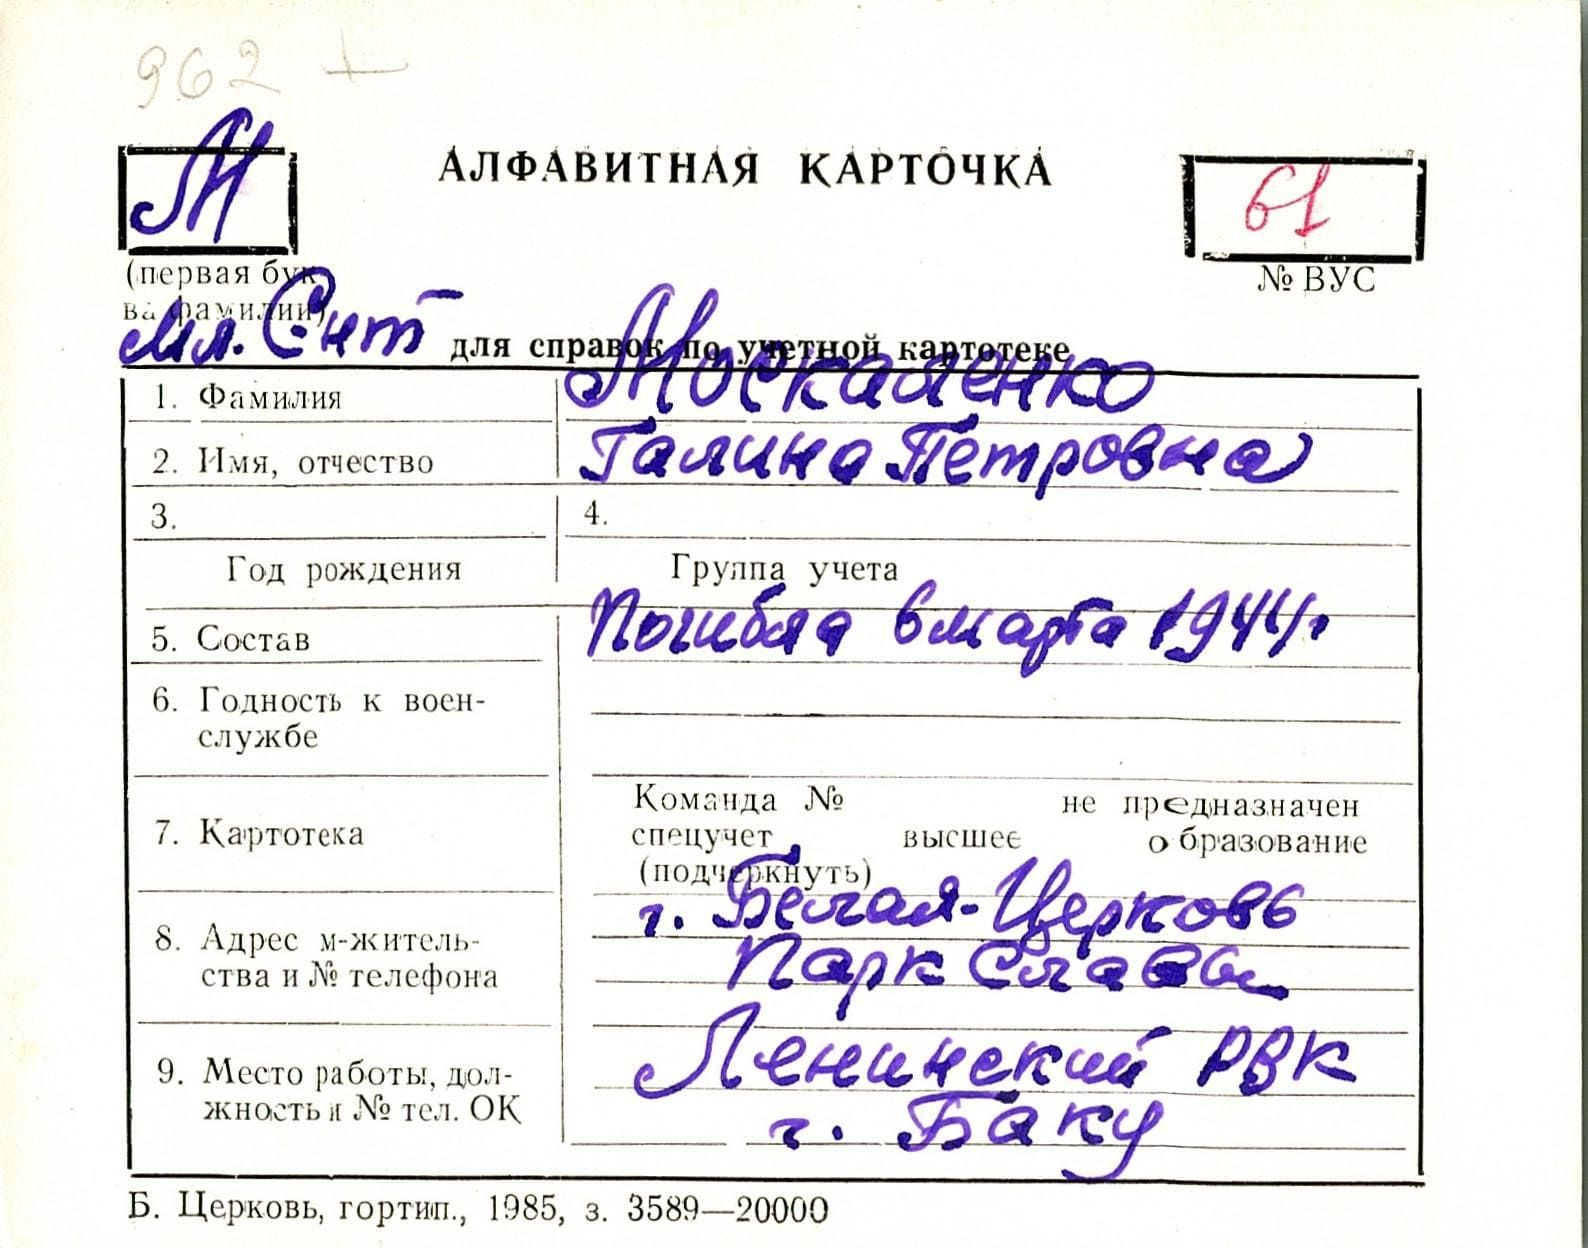 962 +
М
АЛФАВИТНАЯ КАРТОЧКА
61
(первая бук
ва фамилии)
№ ВУС
Мл. Снт
для справок по учетной картотеке
1. Фамилия
Москаленко
2. Имя, отчество
Галина Петровна
3.
4.
Год рождения
Группа учета
5. Состав
Погибла в марта 1944 г.
6. Годность к воен-
службе
7. Картотека
Команда № не предназначен
спецучет высшее образование
(подчеркнуть)
8. Адрес м-житель-
ства и № телефона
г. Белая-Церковь
Парк Славы
9. Место работы, дол-
жность и № тел. ОК
Ленинский РВК
г. Баку
Б. Церковь, гортип., 1985, з. 3589—20000